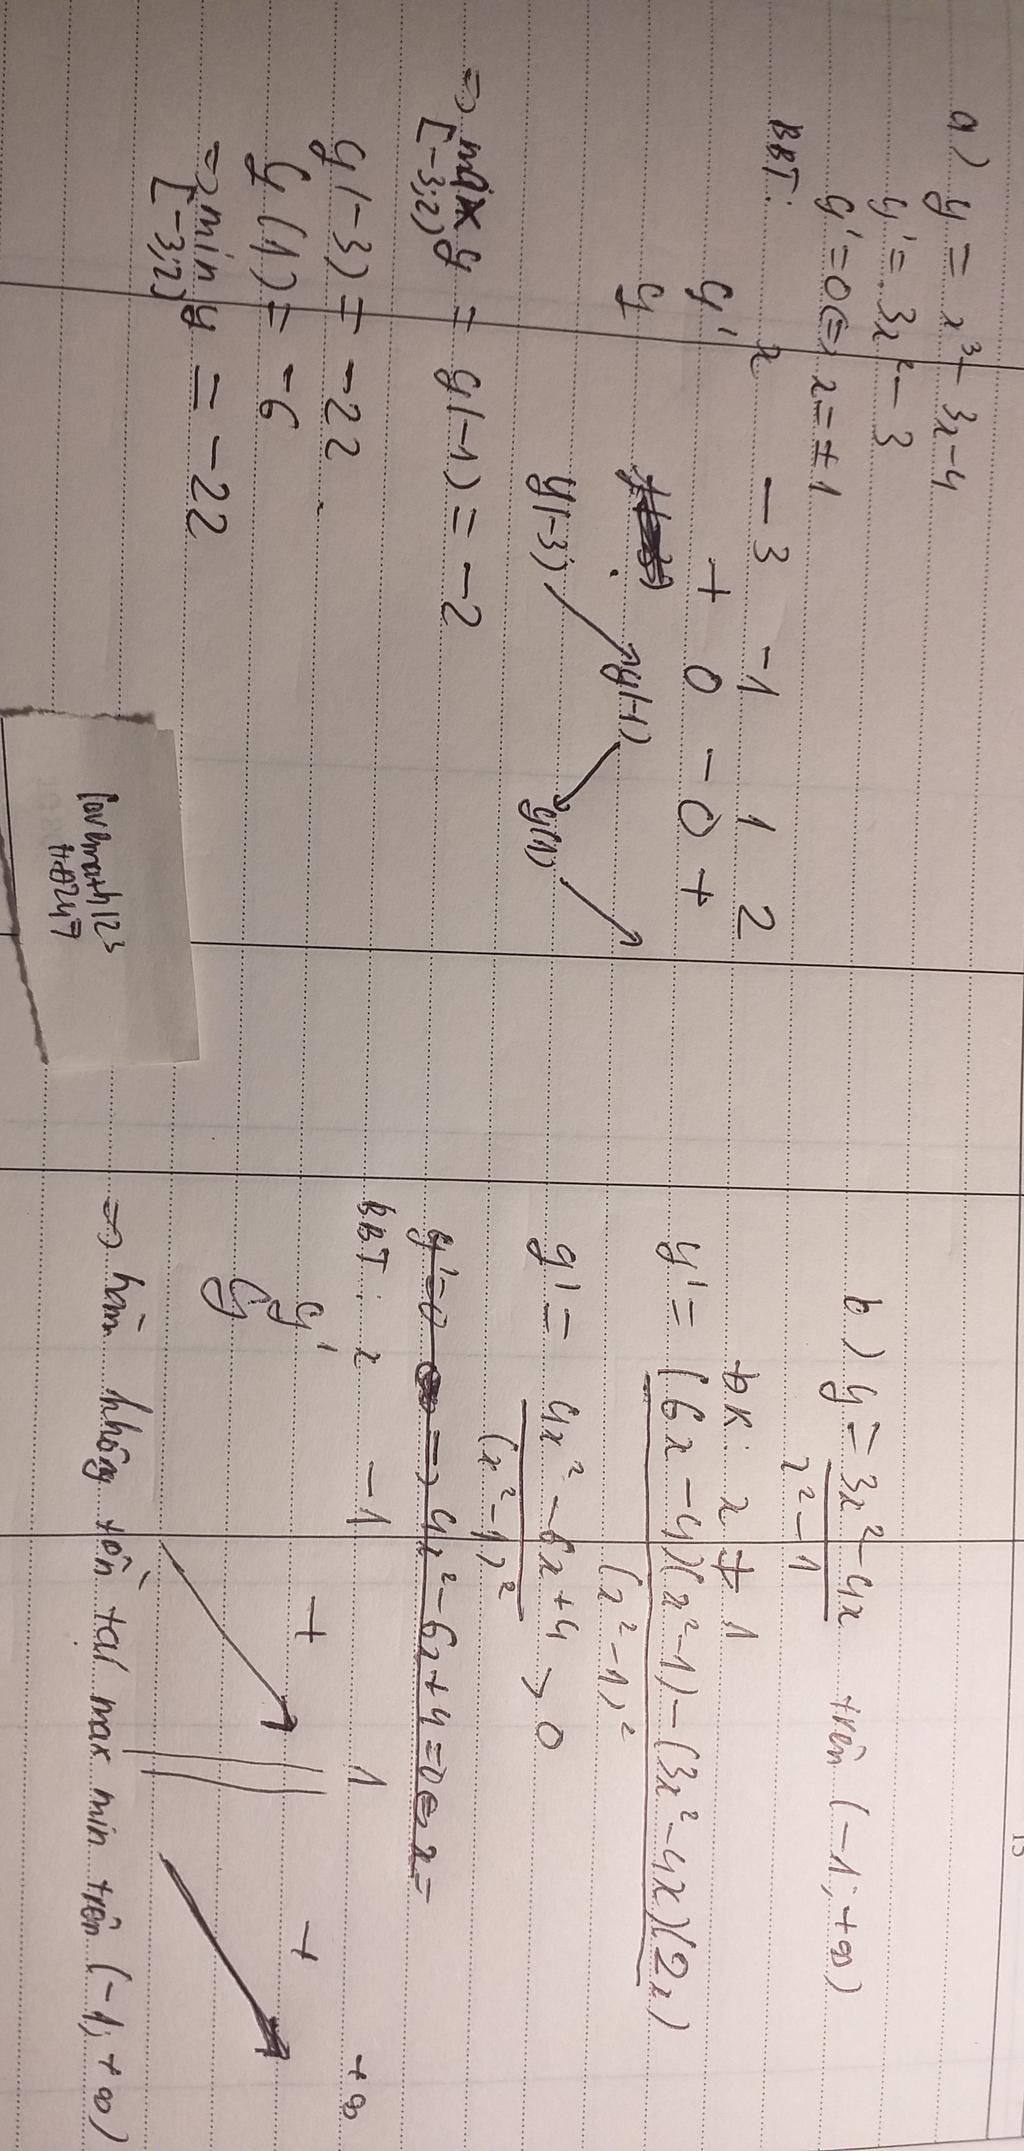 a) y = x³ - 3x - 4
y' = 3x² - 3
y' = 0 ⇔ x = ± 1
BBT:
x -3 -1 1 2
y' + 0 - 0 +
y
y(-3) y(-1) y(1)
=> max y = y(-1) = -2
[-3;2)
y(-3) = -22
y(1) = -6
=> min y = -22
[-3;2)
lovemath123
15
b) y = 3x² - 4x / x² - 1 trên (-1; +∞)
ĐK: x ≠ 1
y' = (6x - 4)(x² - 1) - (3x² - 4x)(2x) / (x² - 1)²
y' = 4x² - 6x + 4 / (x² - 1)² > 0
y' = 0 => 4x² - 6x + 4 = 0 ⇔ x =
BBT: x -1 1 +∞
y' + +
y
=> hàm không tồn tại max min trên (-1; +∞)